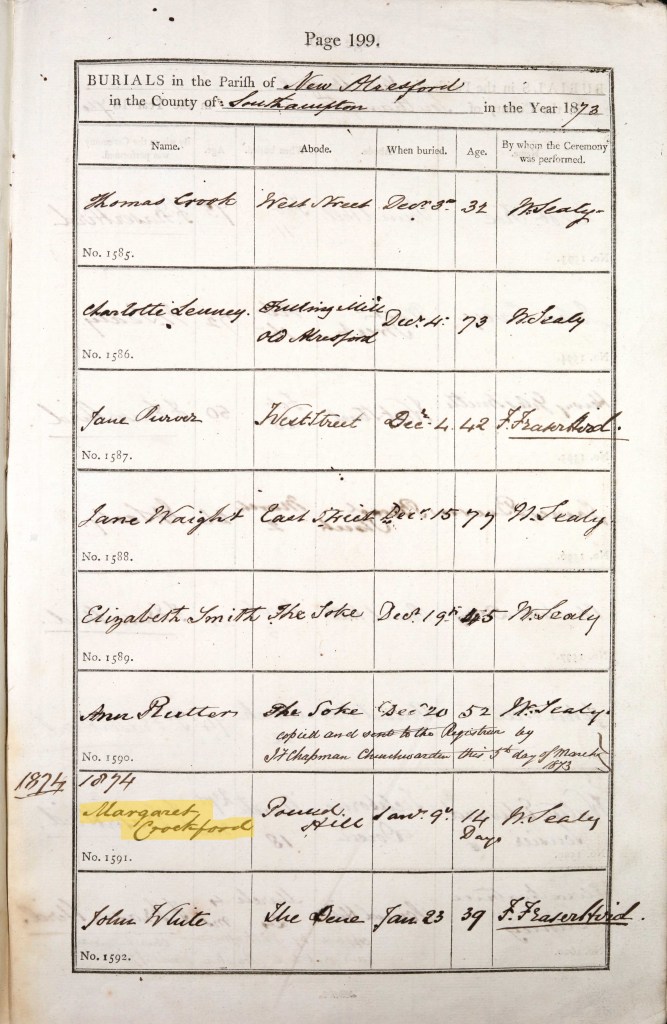 Page 199.
BURIALS in the Parish of New Alresford
in the County of Southampton in the Year 1873
Name. Abode. When buried. Age. By whom the Ceremony was performed.
Thomas Crook West Street Decr 3rd 32 W. Sealy
No. 1585.
Charlotte Lenney. Fulling Mill
Old Alresford Decr 4th 73 W. Sealy
No. 1586.
Jane Purver West Street Decr 4. 42 F. Fraser Hird.
No. 1587.
Jane Waight East Street Decr 15 77 W. Sealy
No. 1588.
Elizabeth Smith The Soke Decr 19th 45 W. Sealy
No. 1589.
Ann Rutter The Soke Decr 20 52 W. Sealy.
copied and sent to the Registrar by
No. 1590. Chapman Churchwarden this 5th day of March
1873
1874 1874
Margaret Crockford Pound Hill Janr 9th 14 Days W. Sealy
No. 1591.
John White The Dene Jan 23 39 F. Fraser Hird.
No. 1592.